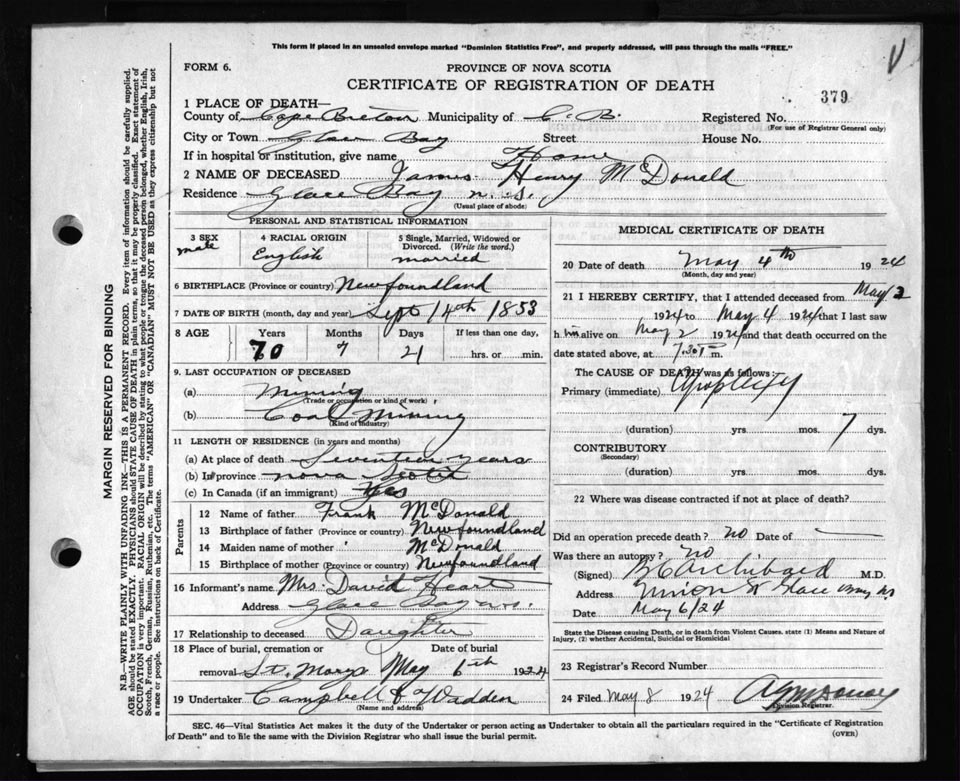 This form if placed in an unsealed envelope marked "Dominion Statistics Free", and properly addressed, will pass through the mails "FREE."
FORM 6.
PROVINCE OF NOVA SCOTIA
CERTIFICATE OF REGISTRATION OF DEATH
379
1 PLACE OF DEATH—
County of Cape Breton Municipality of C. B. Registered No.
(For use of Registrar General only)
City or Town Glace Bay Street House No.
If in hospital or institution, give name Home
2 NAME OF DECEASED James Henry McDonald
Residence Glace Bay n. s.
(Usual place of abode)
PERSONAL AND STATISTICAL INFORMATION
3 SEX male
4 RACIAL ORIGIN English
5 Single, Married, Widowed or Divorced. (Write the word.) married
6 BIRTHPLACE (Province or country) Newfoundland
7 DATE OF BIRTH (month, day and year) Sept 14th 1853
8 AGE Years Months Days If less than one day,
70 7 21 hrs. or min.
9. LAST OCCUPATION OF DECEASED
(a) Mining
(Trade or occupation or kind of work)
(b) Coal Mining
(Kind of industry)
11 LENGTH OF RESIDENCE (in years and months)
(a) At place of death Seventeen years
(b) In province nova Scotia
(c) In Canada (if an immigrant) Yes
Parents
12 Name of father Frank McDonald
13 Birthplace of father (Province or country) Newfoundland
14 Maiden name of mother McDonald
15 Birthplace of mother (Province or country) Newfoundland
16 Informant's name Mrs. David Heart
Address Glace Bay N.S.
17 Relationship to deceased Daughter
18 Place of burial, cremation or Date of burial
removal St. Marys May 6th 1924
19 Undertaker Campbell & Wadden
(Name and address)
MEDICAL CERTIFICATE OF DEATH
20 Date of death May 4th 1924
(Month, day and year)
21 I HEREBY CERTIFY, that I attended deceased from May 2
1924 to May 4 1924 that I last saw
h im alive on May 2 1924 and that death occurred on the
date stated above, at 7.30 P m.
The CAUSE OF DEATH was as follows:
Primary (immediate) Apoplexy
(duration) yrs. mos. 7 dys.
CONTRIBUTORY
(Secondary)
(duration) yrs. mos. dys.
22 Where was disease contracted if not at place of death?
Did an operation precede death? no Date of —
Was there an autopsy? no
(Signed) Archibald M.D.
Address Union St Glace Bay N.S
Date May 6/24
State the Disease causing Death, or in death from Violent Causes. state (1) Means and Nature of
Injury, (2) whether Accidental, Suicidal or Homicidal
23 Registrar's Record Number
24 Filed May 8 1924
Division Registrar.
SEC. 46—Vital Statistics Act makes it the duty of the Undertaker or person acting as Undertaker to obtain all the particulars required in the "Certificate of Registration
of Death" and to file the same with the Division Registrar who shall issue the burial permit.
(OVER)
MARGIN RESERVED FOR BINDING
N.B.—WRITE PLAINLY WITH UNFADING INK—THIS IS A PERMANENT RECORD. Every item of information should be carefully supplied.
AGE should be stated EXACTLY. PHYSICIANS should STATE CAUSE OF DEATH in plain terms, so that it may be properly classified. Exact statement of
OCCUPATION is very important. RACIAL ORIGIN will be described by stating to what people or tongue the deceased person belonged, whether English, Irish,
Scotch, French, German, Russian, Ruthenian, etc. The terms "AMERICAN" or "CANADIAN" MUST NOT BE USED as they express citizenship but not
a race or people. See instructions on back of Certificate.